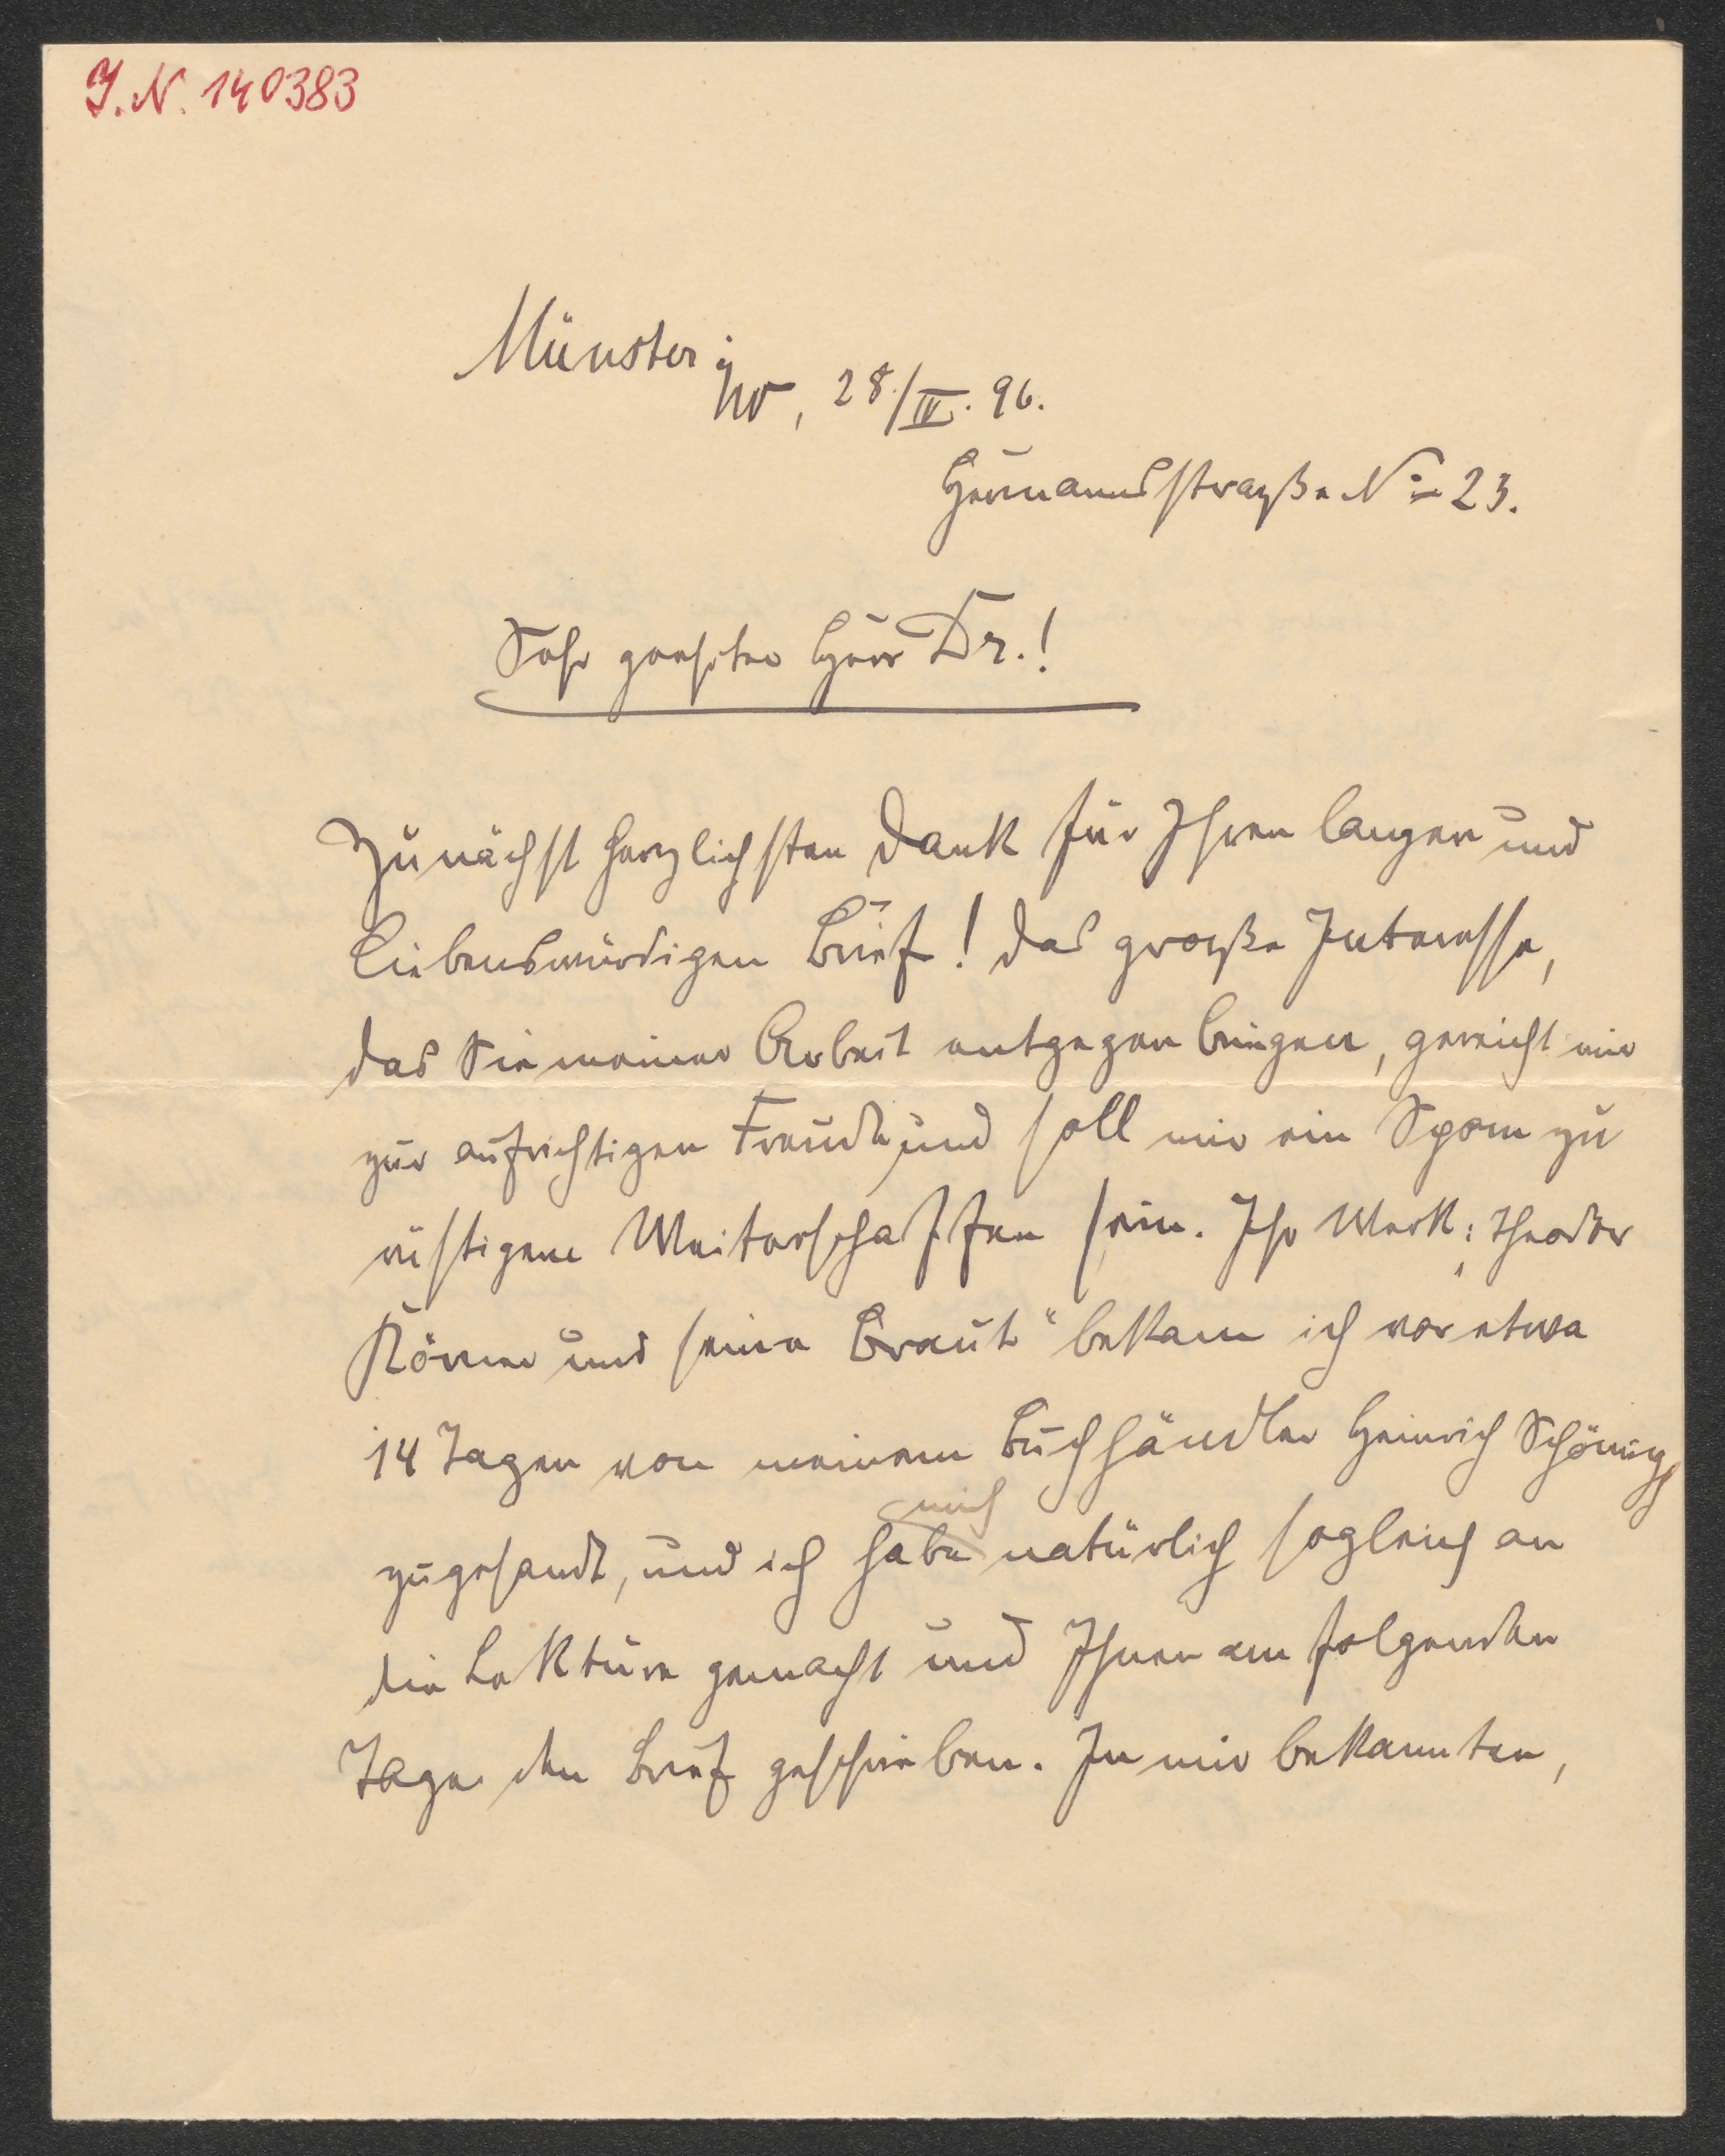 J.N. 140383
Münster i/W, 28./IV. 96.
Hermannsstraße No 23.
Sehr geehrter Herr Dr.!
Zunächst herzlichsten Dank für Ihren langen und
liebenswürdigen Brief! Das große Interesse,
das Sie meiner Arbeit entgegen bringen, gereicht mir
zur aufrichtigen Freude und soll mir ein Sporn zu
rüstigem Weiterschaffen sein. Ihr Werk: „Theodor
Körner und seine Braut“ bekam ich vor etwa
14 Tagen von meinem Buchhändler Heinrich Schöningh
zugesandt, und ich habe mich natürlich sogleich an
die Lektüre gemacht und Ihnen am folgenden
Tage den Brief geschrieben. In mir bekannten,